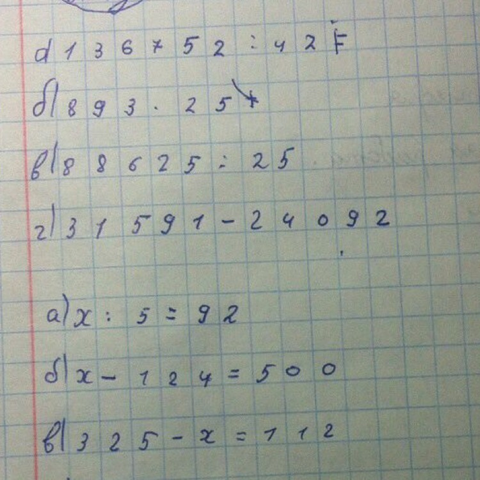 а) 136752 : 42
б) 893 · 25
в) 88625 : 25
г) 31591 - 24092
а) x : 5 = 92
б) x - 124 = 500
в) 325 - x = 112